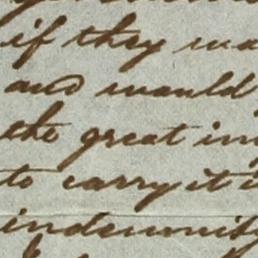 if they wa
and would
the great in
to carry it i
indemnity